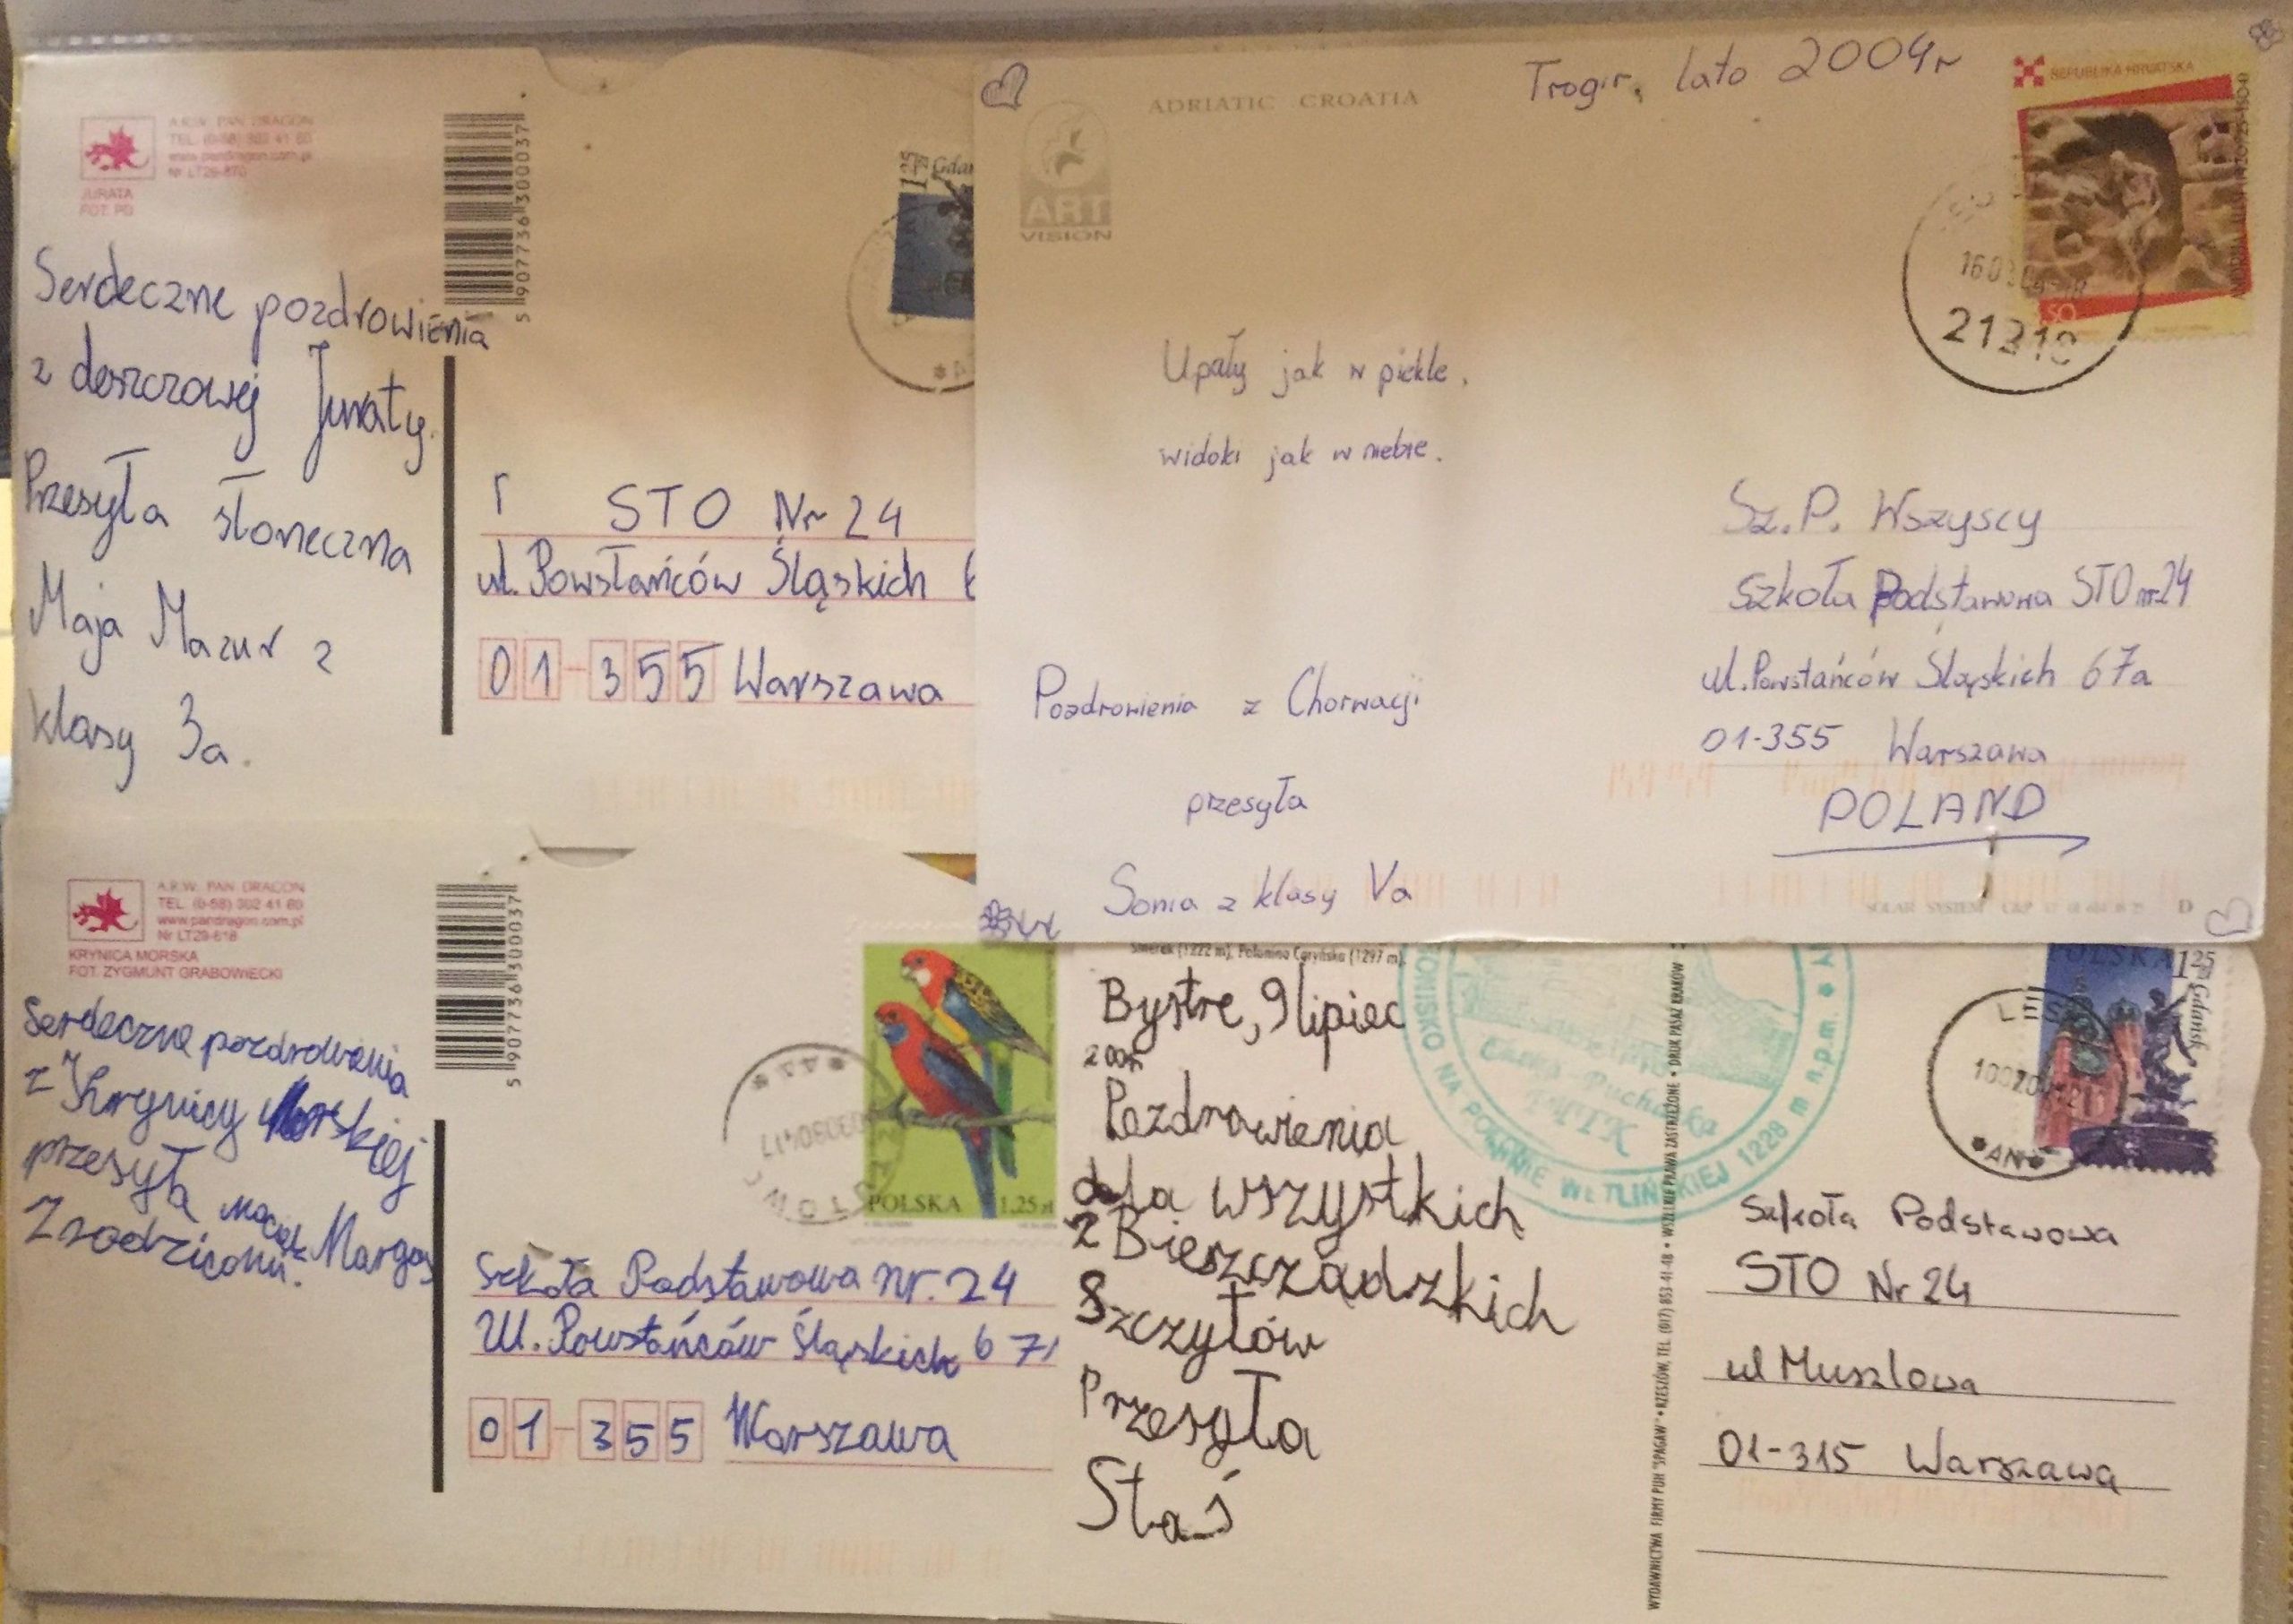 A.R.W. PAN DRAGON
TEL. (0-58) 302 41 60
www.pandragon.com.pl
Nr LT29-870
JURATA
FOT. PG
5 907736 300037
Gdań
Serdeczne pozdrowienia
z deszczowej Juraty.
Przesyła słoneczna
Maja Mazur z
klasy 3a.
STO Nr 24
ul. Powstańców Śląskich 6
01-355 Warszawa
ADRIATIC CROATIA
ART
VISION
Trogir, lato 2004r
REPUBLIKA HRVATSKA
21218
Upały jak w piekle,
widoki jak w niebie.
Pozdrowienia z Chorwacji
przesyła
Sonia z klasy Va
Sz. P. Wszyscy
Szkoła Podstawowa STO nr 24
ul. Powstańców Śląskich 67a
01-355 Warszawa
POLAND
SOLAR SYSTEM
D
A.R.W. PAN DRAGON
TEL. (0-58) 302 41 60
www.pandragon.com.pl
Nr LT29-618
KRYNICA MORSKA
FOT. ZYGMUNT GRABOWIECKI
5 907736 300037
POLSKA 1,25 zł
Serdeczne pozdrowienia
z Krynicy Morskiej
przesyła Maciek Margas
Z rodzicami.
Szkoła Podstawowa nr. 24
Ul. Powstańców Śląskich 67
01-355 Warszawa
Smerek (1222 m), Połonina Caryńska (1297 m).
Bystre, 9 lipiec
2004r
Pozdrowienia
dla wszystkich
z Bieszczadzkich
Szczytów
Przesyła
Staś
NA POŁONINIE WETLIŃSKIEJ 1228 m n.p.m.
PTTK
WYDAWNICTWA FIRMY PUH "SPAGAW" • RZESZÓW, TEL. (017) 853-41-48 • WSZELKIE PRAWA ZASTRZEŻONE • DRUK PASAŻ KRAKÓW
POLSKA 1,25
Gdańsk
LES
Szkoła Podstawowa
STO Nr 24
ul Muszlowa
01-315 Warszawa